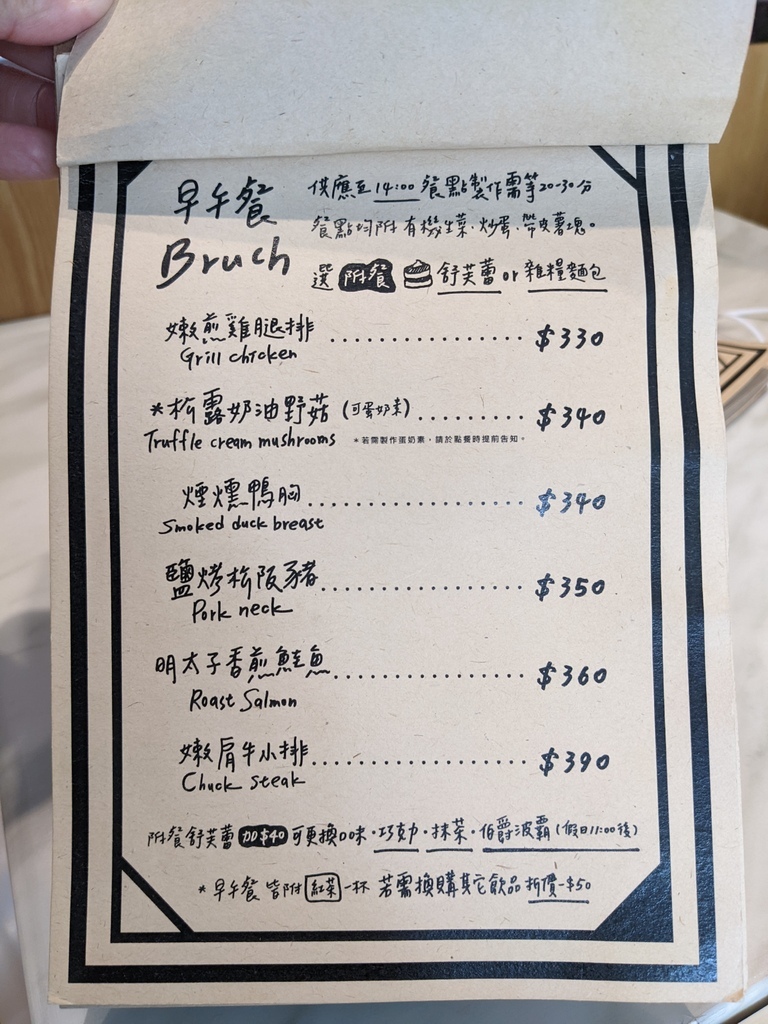 早午餐
Bruch
供應至14:00 餐點製作需等20-30分
餐點均附 有機生菜·炒蛋·帶皮薯塊。
選 附餐 舒芙蕾 or 雜糧麵包
嫩煎雞腿排 .................. $330
Grill chicken
*松露奶油野菇 (可蛋奶素) .......... $340
Truffle cream mushrooms *若需製作蛋奶素，請於點餐時提前告知。
煙燻鴨胸 .................... $340
Smoked duck breast
鹽烤松阪豬 ................... $350
Pork neck
明太子香煎鮭魚 .................. $360
Roast Salmon
嫩肩牛小排 .................... $390
Chuck steak
附餐舒芙蕾 加$40 可更換口味·巧克力·抹茶·伯爵波霸(假日11:00後)
*早午餐 皆附 紅茶 一杯 若需換購其它飲品 折價-$50